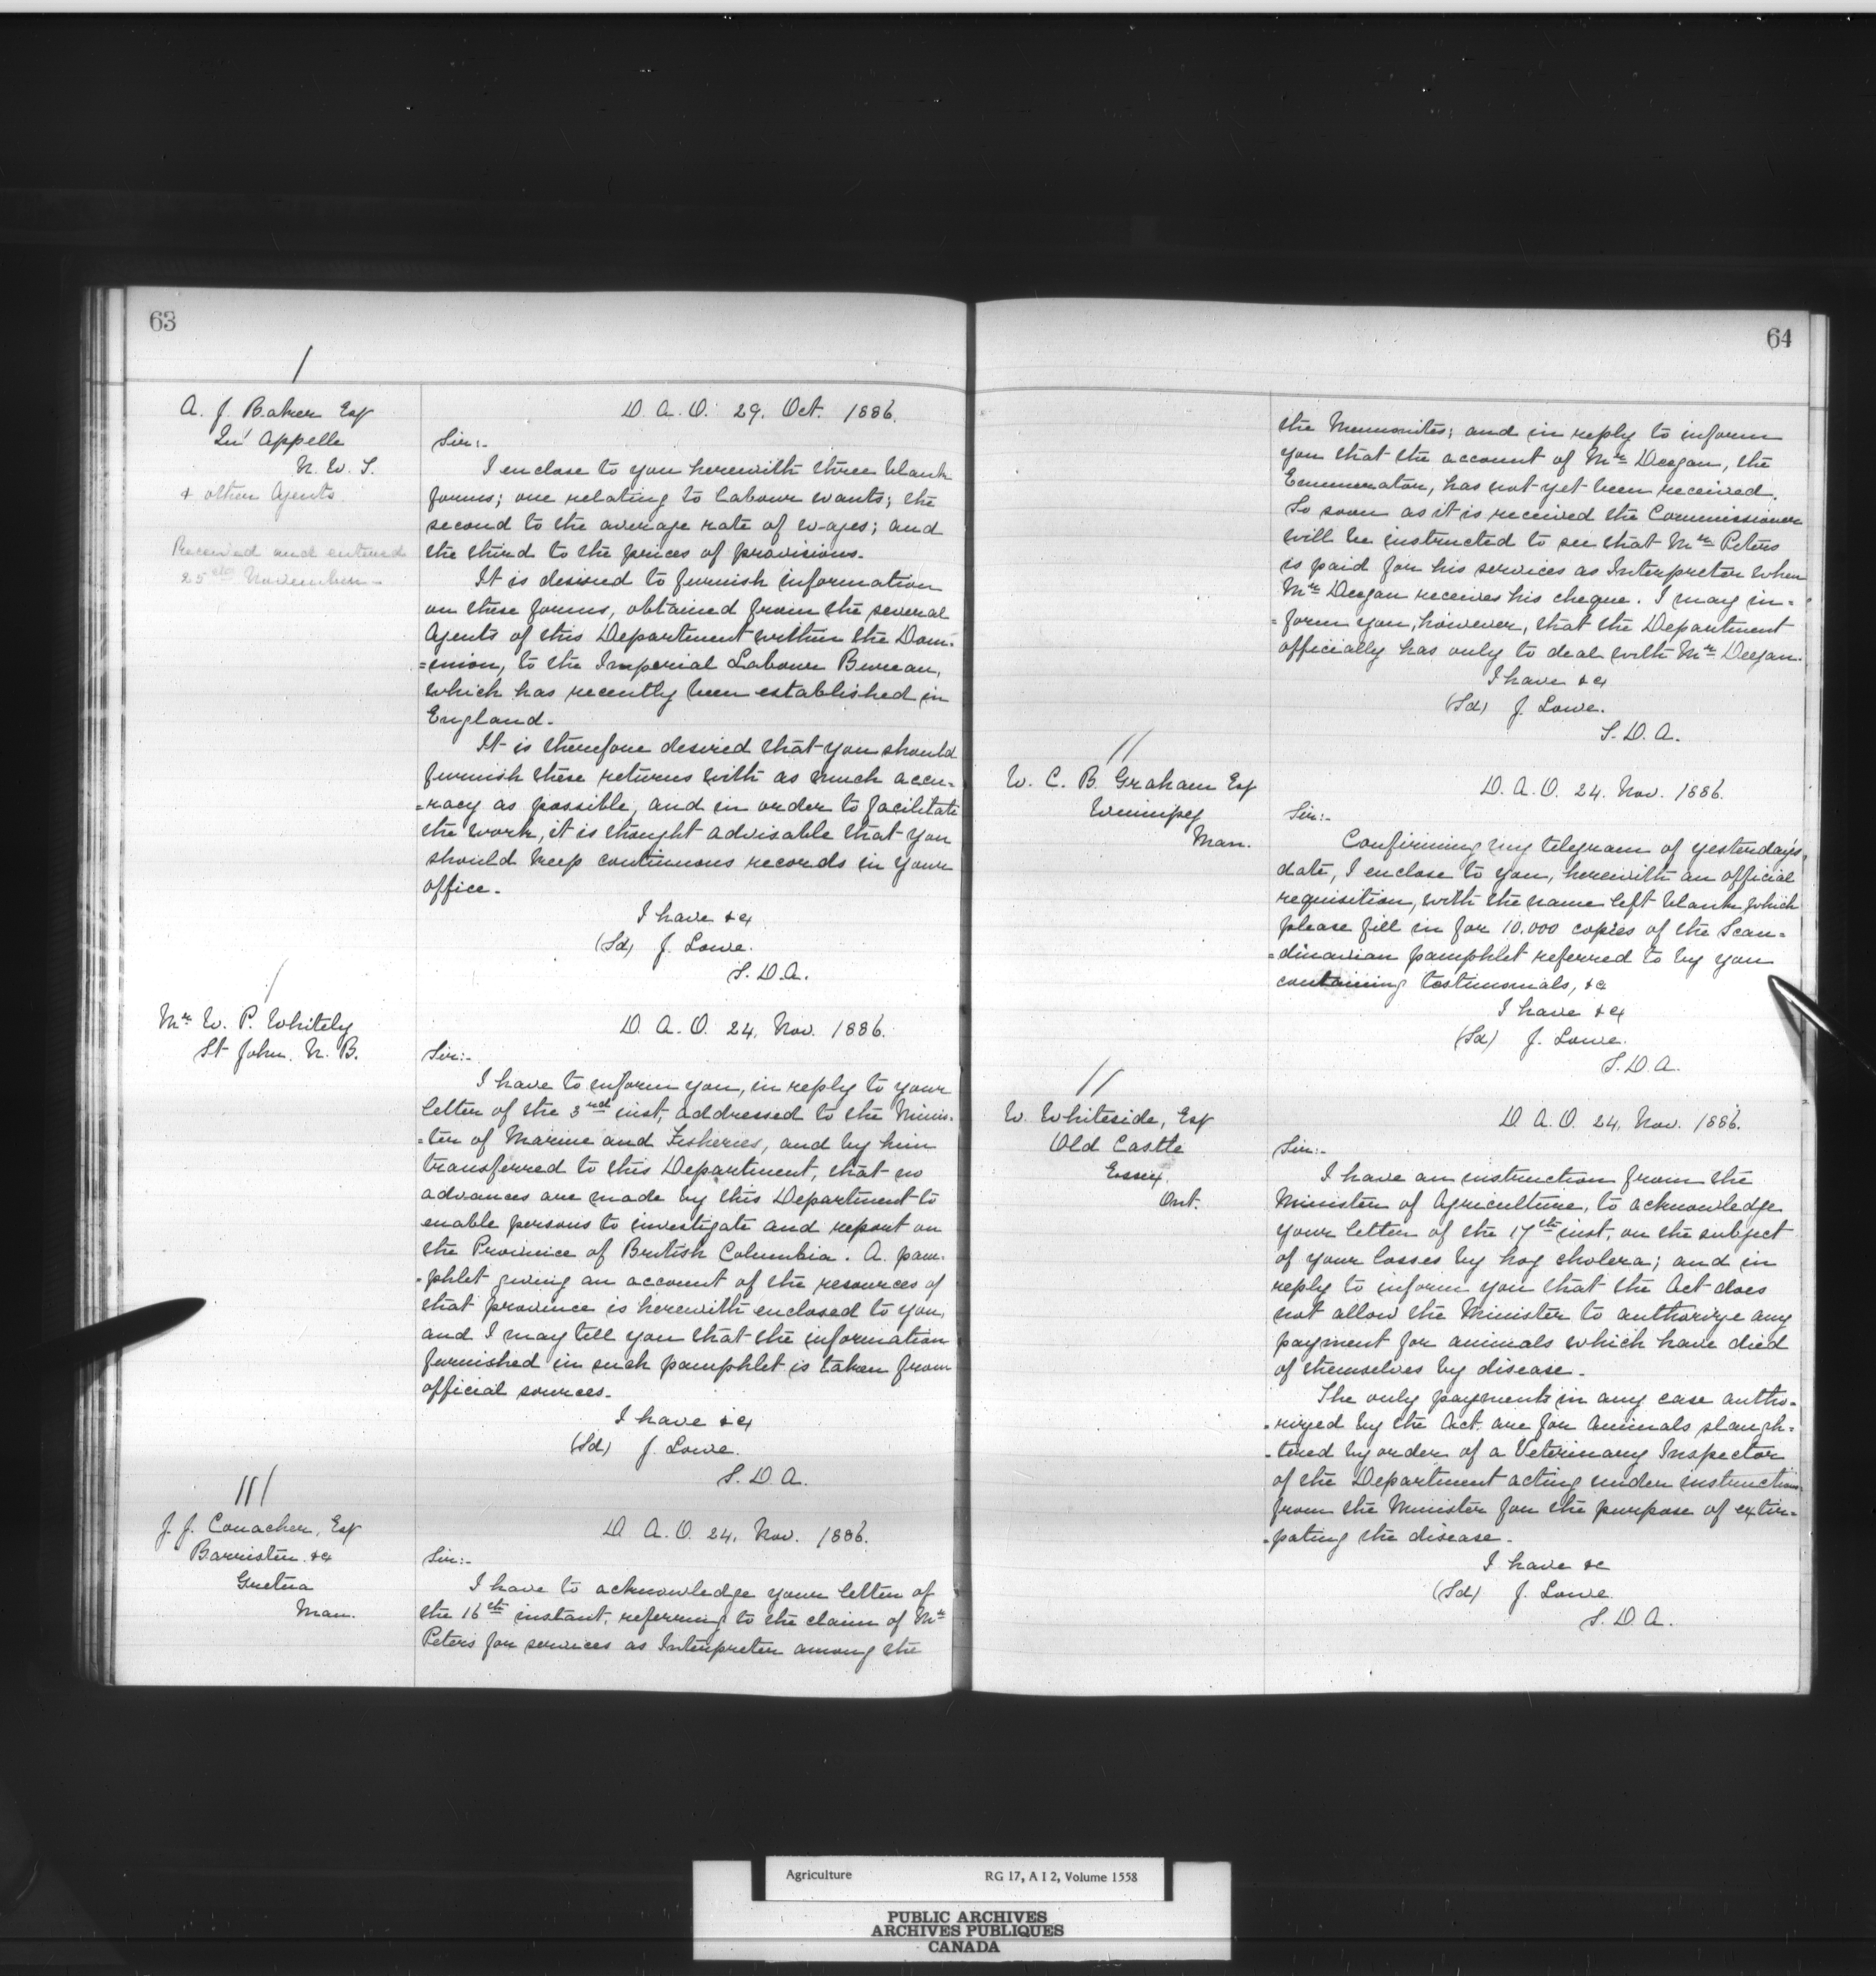 63
/
A. J. Baker Esq
Qu' Appelle
N. W. T.
& other Agents
Received and entered
25th November -
D. A. O. 29. Oct. 1886.
Sir:-
I enclose to you herewith three blank
forms; one relating to labour wants; the
second to the average rate of wages; and
the third to the prices of provisions.
It is desired to furnish information
on these forms, obtained from the several
Agents of this Department within the Dom-
=inion, to the Imperial Labour Bureau,
which has recently been established in
England.
It is therefore desired that you should
furnish these returns with as much accu-
=racy as possible, and in order to facilitate
the work, it is thought advisable that you
should keep continuous records in your
office.
I have &c
(Sd) J. Lowe.
S. D. A.
/
Mr W. P. Whitely
St John. N. B.
D. A. O. 24. Nov. 1886.
Sir:-
I have to inform you, in reply to your
letter of the 3rd inst, addressed to the Minis-
=ter of Marine and Fisheries, and by him
transferred to this Department, that no
advances are made by this Department to
enable persons to investigate and report on
the Province of British Columbia. A. pam-
=phlet giving an account of the resources of
that province is herewith enclosed to you,
and I may tell you that the information
furnished in such pamphlet is taken from
official sources.
I have &c
(Sd) J. Lowe.
S. D. A.
///
J. J. Conacher, Esq
Barrister &c
Gretna
Man.
D. A. O. 24. Nov. 1886.
Sir:-
I have to acknowledge your letter of
the 16th instant, referring to the claim of Mr
Peters for services as Interpreter among the
64
the Mennonites; and in reply to inform
you that the account of Mr Deegan, the
Enumerator, has not yet been received.
So soon as it is received the Commissioner
will be instructed to see that Mr Peters
is paid for his services as Interpreter when
Mr Deegan receives his cheque. I may in-
=form you, however, that the Department
officially has only to deal with Mr Deegan.
I have &c
(Sd) J. Lowe.
S. D. A.
//
W. C. B. Graham Esq
Winnipeg
Man.
D. A. O. 24. Nov. 1886.
Sir:-
Confirming my telegram of yesterday's
date, I enclose to you, herewith an official
requisition, with the name left blank which
please fill in for 10.000 copies of the Scan-
=dinavian pamphlet referred to by you
containing testimonials, &c
I have &c
(Sd) J. Lowe.
S. D. A.
//
W. Whiteside, Esq
Old Castle
Essex.
Ont.
D. A. O. 24. Nov. 1886.
Sir:-
I have an instruction from the
Minister of Agriculture, to acknowledge
your letter of the 17th inst, on the subject
of your losses by hog cholera; and in
reply to inform you that the Act does
not allow the Minister to authorize any
payment for animals which have died
of themselves by disease.
The only payments in any case autho-
=rized by the Act are for animals slaugh-
=tered by order of a Veterinary Inspector
of the Department acting under instructions
from the Minister for the purpose of extir-
=pating the disease.
I have &c
(Sd) J. Lowe
S. D. A.
Agriculture RG 17, A I 2, Volume 1558
PUBLIC ARCHIVES
ARCHIVES PUBLIQUES
CANADA